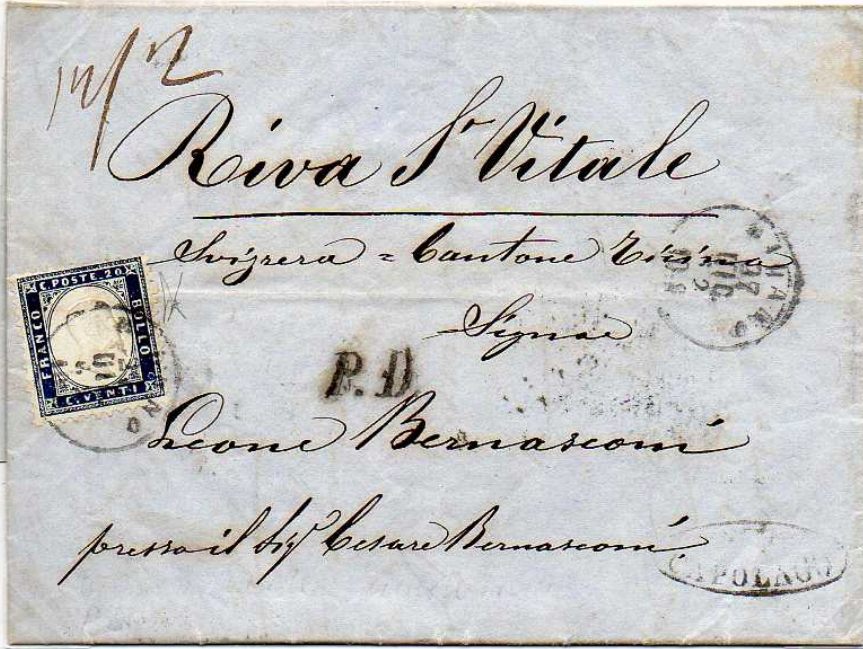 12/12
Riva S. Vitale
Svizzera = Cantone Ticino
C. POSTE. 20
FRANCO
BOLLO
C. VENTI
Signor
P.D
Leone Bernasconi
presso il Sigr Cesare Bernasconi
CAPOLAGO